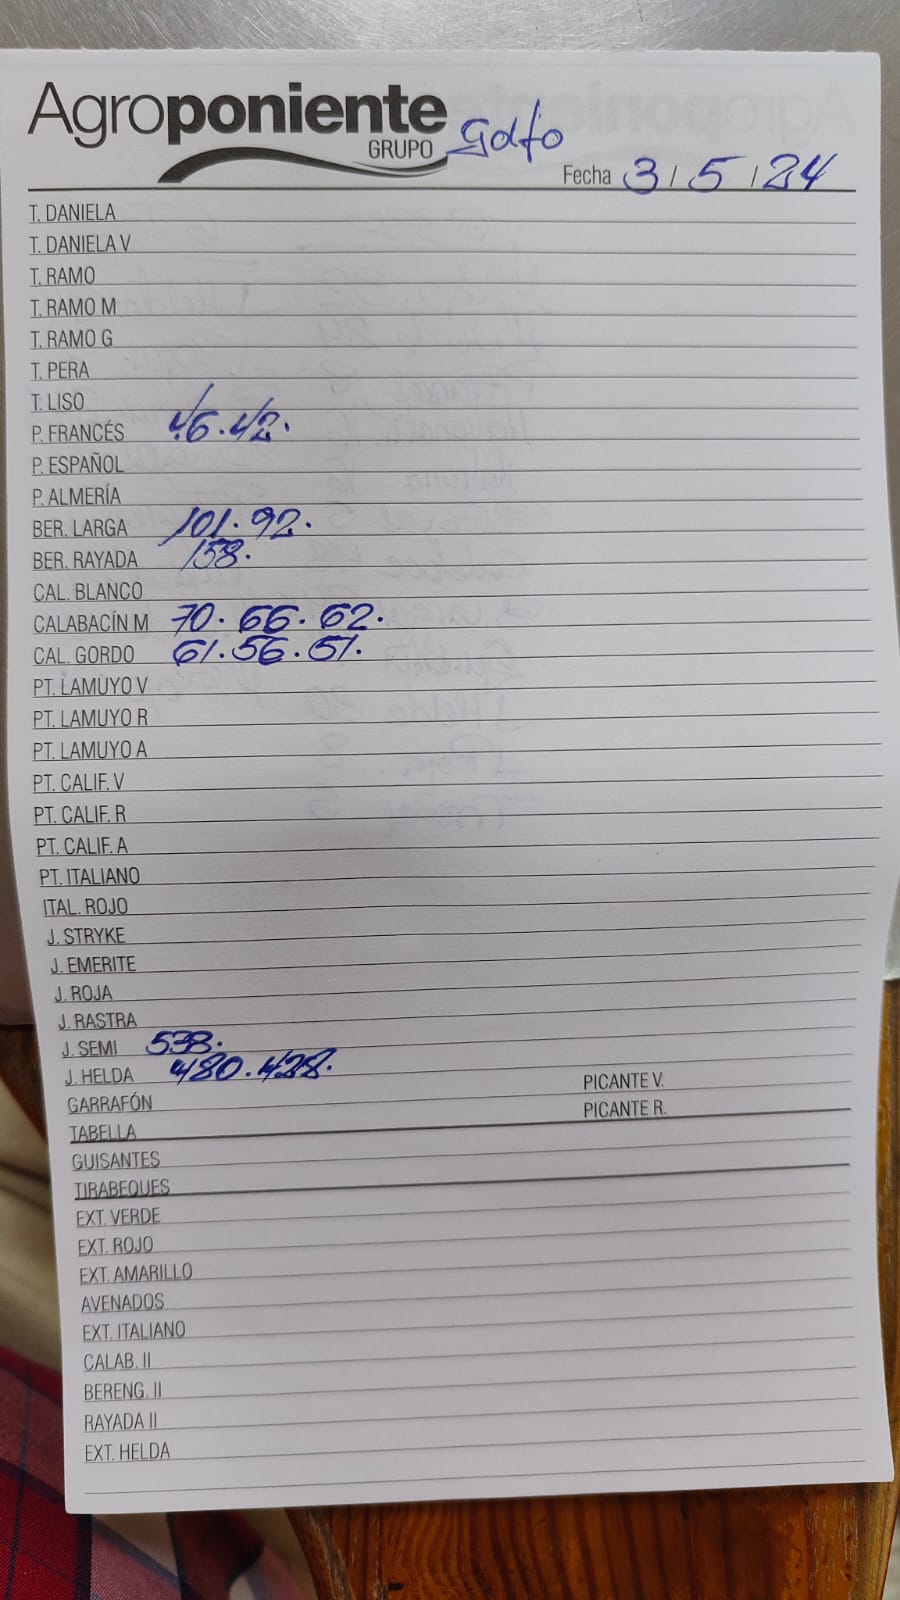 Agroponiente
GRUPO
Golfo
Fecha 3 / 5 / 24
T. DANIELA
T. DANIELA V
T. RAMO
T. RAMO M
T. RAMO G
T. PERA
T. LISO
P. FRANCÉS 46.42.
P. ESPAÑOL
P. ALMERÍA
BER. LARGA 101.92.
BER. RAYADA 158.
CAL. BLANCO
CALABACÍN M 70.66.62.
CAL. GORDO 61.56.51.
PT. LAMUYO V
PT. LAMUYO R
PT. LAMUYO A
PT. CALIF. V
PT. CALIF. R
PT. CALIF. A
PT. ITALIANO
ITAL. ROJO
J. STRYKE
J. EMERITE
J. ROJA
J. RASTRA
J. SEMI 533.
J. HELDA 480.428.
GARRAFÓN PICANTE V.
TABELLA PICANTE R.
GUISANTES
TIRABEQUES
EXT. VERDE
EXT. ROJO
EXT. AMARILLO
AVENADOS
EXT. ITALIANO
CALAB. II
BERENG. II
RAYADA II
EXT. HELDA